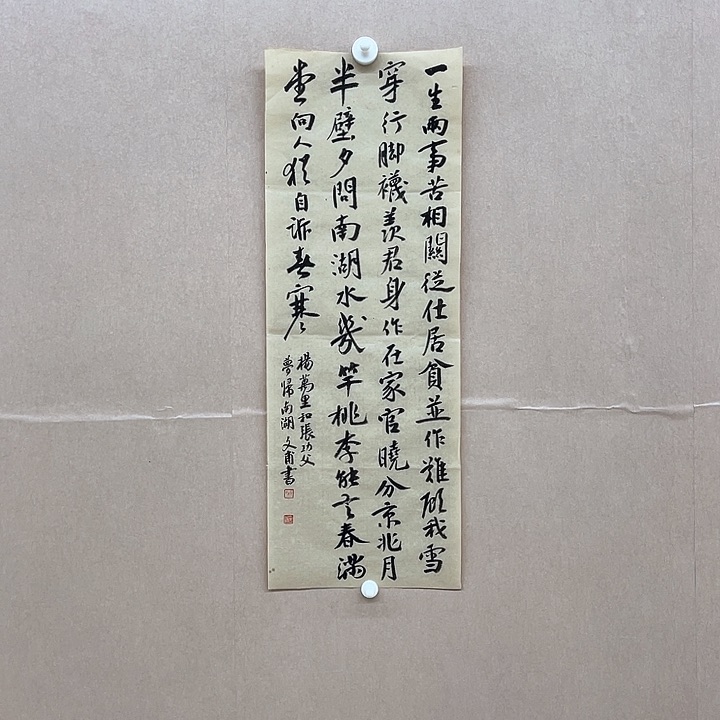 一生兩事苦相關從仕居貧並作難顧我雪
穿行脚襪羨君身作在家官曉分京兆月
半壁夕問南湖水幾竿桃李能言春滿
向人猶自訴寒
楊萬里和張功父
夢歸南湖 文甫書